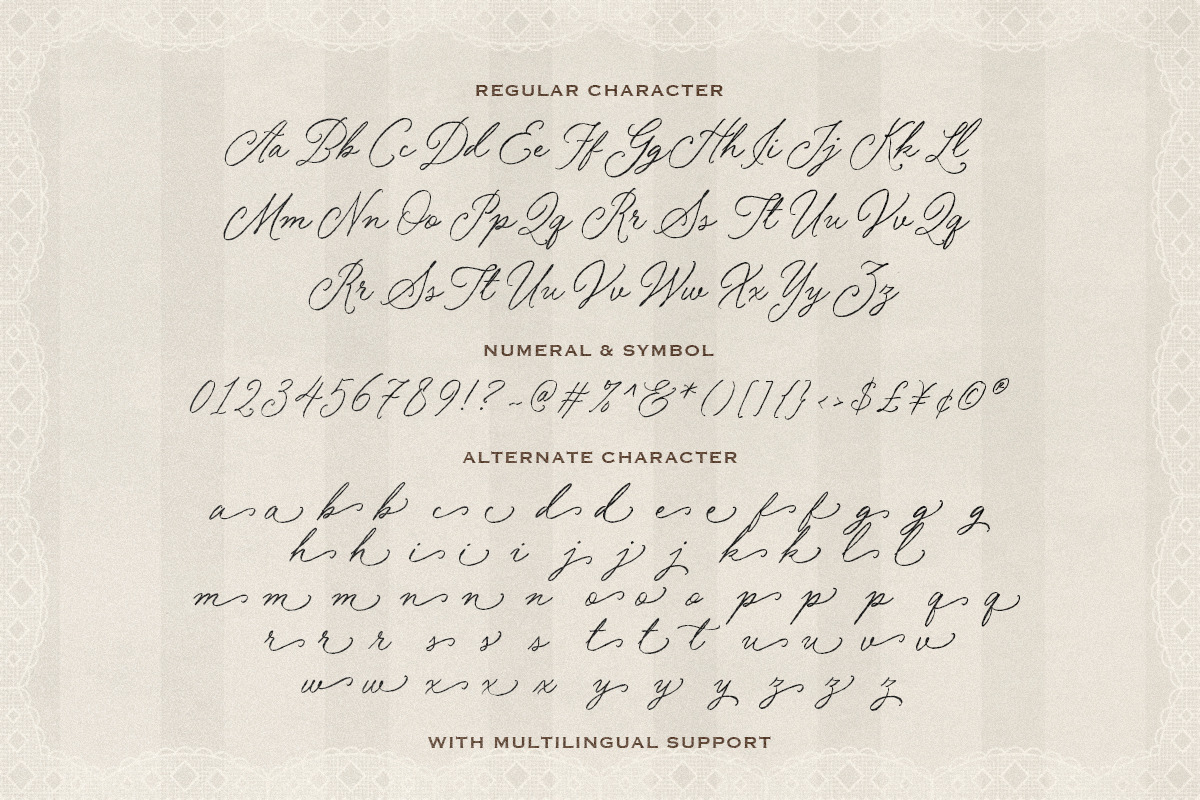 REGULAR CHARACTER
Aa Bb Cc Dd Ee Ff Gg Hh Ii Jj Kk Ll
Mm Nn Oo Pp Qq Rr Ss Tt Uu Vv Qq
Rr Ss Tt Uu Vv Ww Xx Yy Zz
NUMERAL & SYMBOL
0123456789!?~@#%^&*()[]{}<>$£¥¢©®
ALTERNATE CHARACTER
a a b b c c d d e e f f g g g
h h i i i j j j k k l l
m m m n n n o o o p p p q q
r r r s s s t t t u u v v
w w x x x y y y z z z
WITH MULTILINGUAL SUPPORT